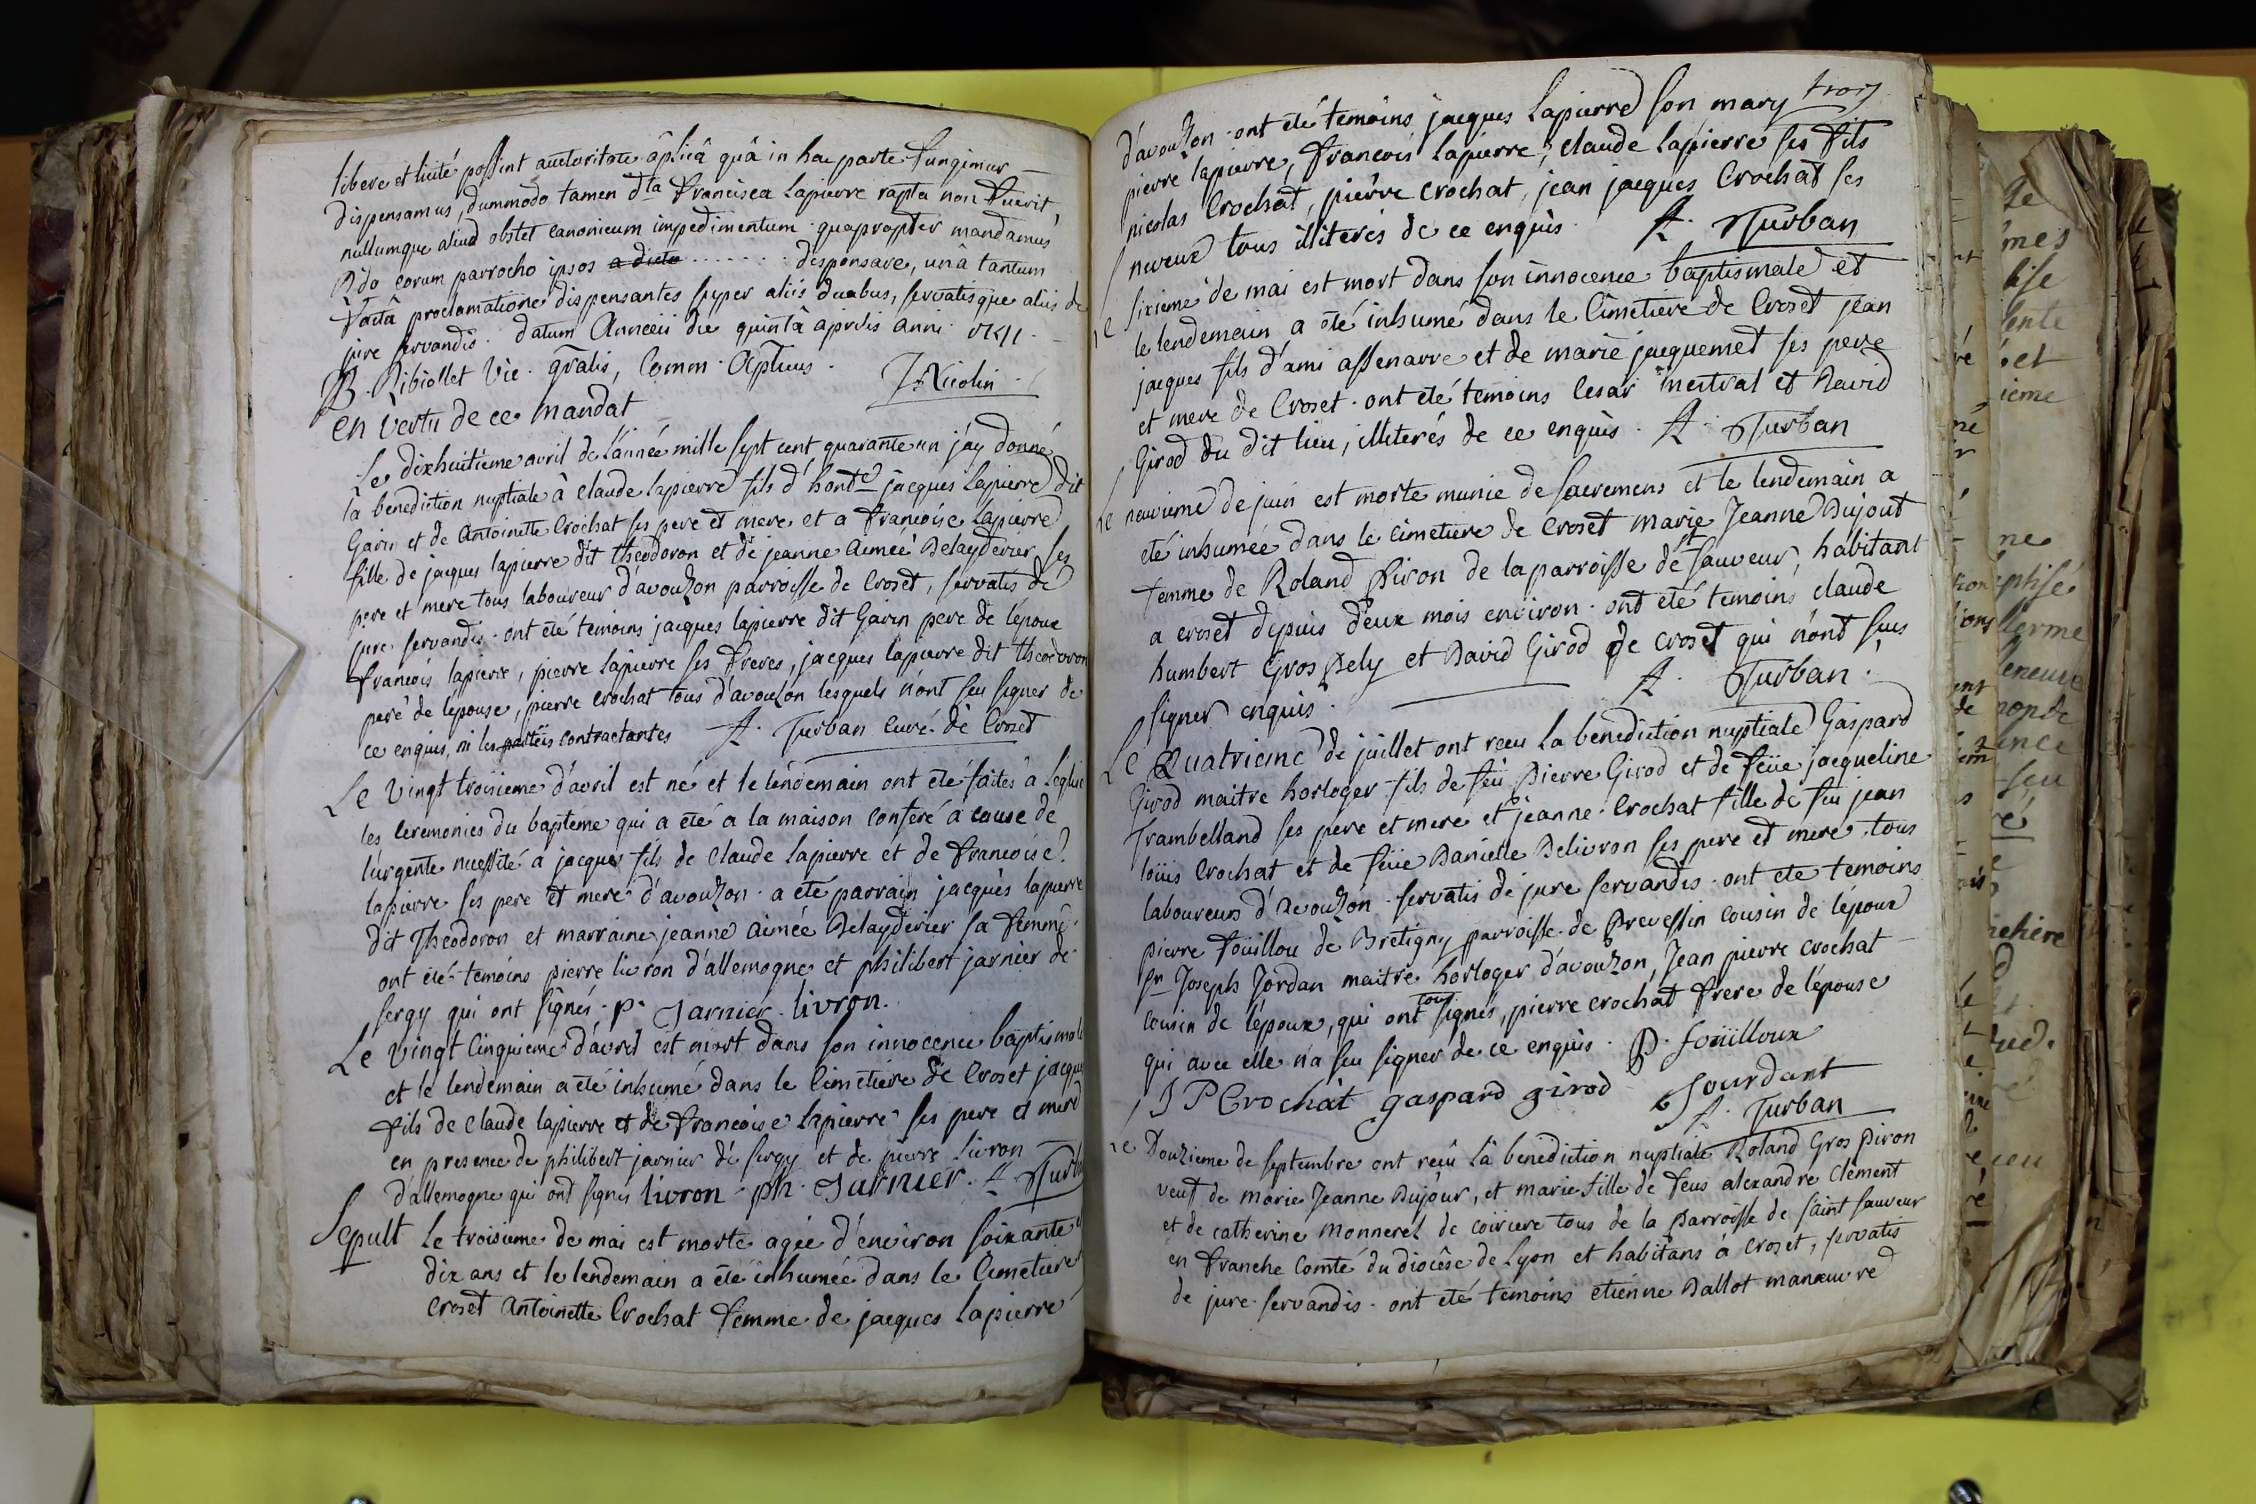 libere et licité possint auctoritate aplicâ quâ in hac parte fungimur
dispensamus, dummodo tamen dta francisca Lapierre rapta non fuerit,
nullumque aliud obstet canonicum impedimentum. quapropter mandamus
Rdo eorum parrocho ipsos a dicto ....... dispensare, unâ tantum
factâ proclamatione dispensantes super aliis duabus, servatisque aliis de
jure servandis. datum Annecii die quintâ aprilis anni 1741.
B. Ribiollet Vic. gralis, Comm. Aplicus. J Nicolin.
en vertu de ce mandat
Le dixhuitieme avril de l'année mille sept cent quarante un j'ay donné
la benediction nuptiale à claude lapierre fils d'honble jacques lapierre dit
Gavin et de antoinette Crochat ses pere et mere et a francoise lapierre
fille de jacques lapierre dit theodoron et de jeanne aimée Delaydevier ses
pere et mere tous laboureur d'avouzon parroisse de Croset, servatis de
jure servandis. ont été temoins jacques lapierre dit Gavin pere de l'époux
francois lapierre, pierre lapierre ses freres, jacques lapierre dit theodoron
pere de l'epouse, pierre crochat tous d'avouzon lesquels n'ont seu signer de
ce enquis, ni les parteis contractantes A. Turban curé de Croset
Le vingt troisieme d'avril est né et le lendemain ont été faites à l'eglise
les ceremonies du bapteme qui a été a la maison conferé à cause de
l'urgente necessité a jacques fils de claude lapierre et de francoise
lapierre ses pere et mere d'avouzon. a été parrain jacques lapierre
dit Theodoron et marraine jeanne aimée Delaydevier sa femme.
ont été temoins pierre livron d'allemogne et philibert jarnier de
sergy qui ont signés. p. Jarnier. livron.
Le vingt cinquieme d'avril est mort dans son innocence baptismale
et le lendemain a été inhumé dans le cimetiere de Croset jacques
fils de claude lapierre et de francoise lapierre ses pere et mere
en presence de philibert jarnier de sergy et de pierre livron
d'allemogne qui ont signes livron. ph. Jarnier. A. Turb
Sepult Le troisieme de mai est morte agée d'environ soixante
dix ans et le lendemain a été inhumée dans le Cimetiere
croset antoinette Crochat femme de jacques lapierre
trois
d'avouzon. ont été temoins jacques lapierre son mary
pierre lapierre, francois lapierre, claude lapierre ses fils
nicolas Crochat, pierre crochat, jean jacques Crochat ses
neveux tous illiterés de ce enquis. A. Turban
le sixieme de mai est mort dans son innocence baptismale et
le lendemain a été inhumé dans le Cimetiere de Croset jean
jacques fils d'ami assenarre et de marie jacquemet ses pere
et mere de Croset. ont été temoins Cesar mestral et David
Girod du dit lieu, illiterés de ce enquis. A. Turban
Le neuvieme de juin est morte munie de sacremens et le lendemain a
été inhumée dans le cimetiere de croset marie Jeanne Dujout
femme de Roland Piron de la parroisse de sauveur, habitant
a croset depuis deux mois environ. ont été temoins claude
humbert Gros Pely et David Girod de croset qui n'ont seus
signer enquis. A. Turban.
Le Quatrieme de juillet ont recu la benediction nuptiale Gaspard
Girod maitre horloger fils de feu Pierre Girod et de feüe jacqueline
Trambelland ses pere et mere et jeanne Crochat fille de feu jean
loüis Crochat et de feüe Danielle Delivron ses pere et mere, tous
laboureurs d'avouzon. servatis de jure servandis. ont été temoins
pierre fouillou de Bretigny parroisse de Prevessin cousin de l'époux
Pr Joseph Jordan maitre horloger d'avouzon, Jean pierre crochat
cousin de l'époux, qui ont tous signés, pierre crochat frere de l'épouse
qui avec elle n'a seu signer de ce enquis. P. foüilloux
J P Crochat gaspard girod Jourdant
A. Turban
le Douzieme de septembre ont recû la benediction nuptiale Roland Gros Piron
veuf de marie Jeanne Dujour, et marie fille de feus alexandre Clement
et de catherine monneret de coiriere tous de la Parroisse de saint sauveur
en franche Comté du diocêse de Lyon et habitans à croset, servatis
de jure servandis. ont été temoins etienne Ballot manœuvre